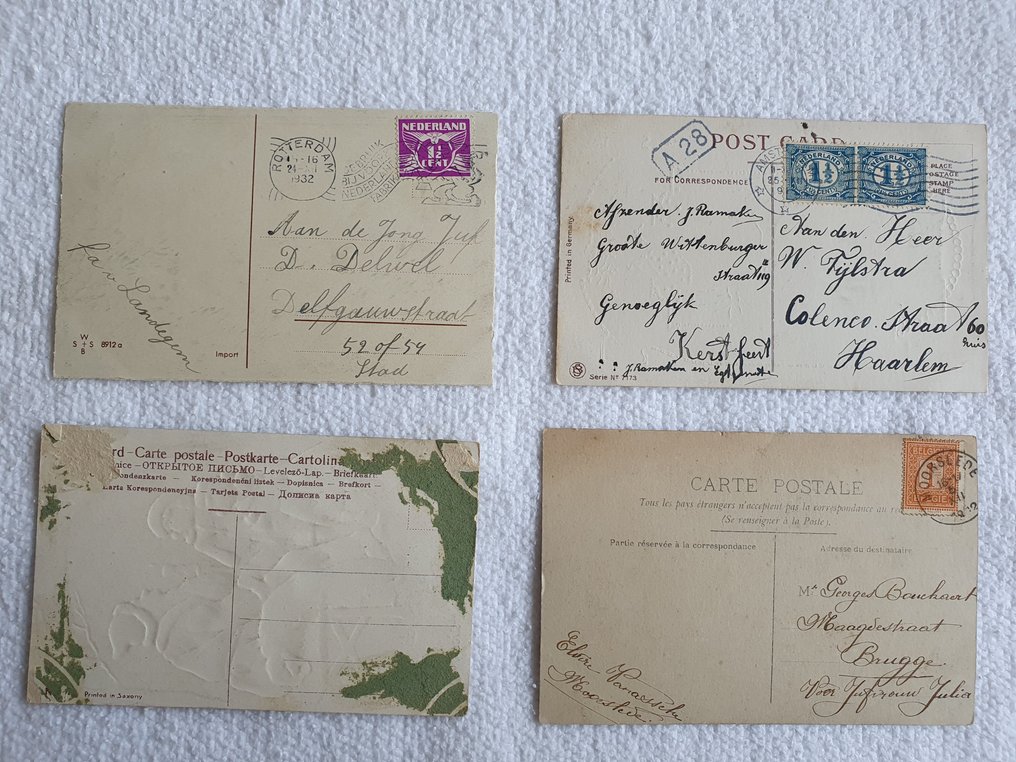 ROTTERDAM
21
1932
GEBRUIK
BIJVOORKEUR
NEDERLANDSCH
FABRIKAAT
NEDERLAND
1½
CENT
Aan de Jong Juf
D. Delwel
Delfgauwstraat
52 of 54
Stad
fa v. Landegem
W
S + S 8912a
B
Import
A 28
POST CARD
FOR CORRESPONDENCE
PLACE
POSTAGE
STAMP
HERE
AMST
NEDERLAND
1½
NEDERLAND
1½
Printed in Germany
Afzender. J. Ramak
Groote Wittenburger
straat 119
Genoeglijk
Kerstfeest
J. Ramaken en
Serie No 7173
Aan den Heer
W. Tijlstra
Colenco. Straat 60
huis
Haarlem
rd – Carte postale – Postkarte – Cartolina
nice – ОТКРЫТОЕ ПИСЬМО – Levelező-Lap. – Briefkaart
ondenzkarte – Korespondenční lístek – Dopisnica – Brefkort –
Karta Korespondencyjna – Tarjeta Postal – Дописна карта
Printed in Saxony
CARTE POSTALE
Tous les pays étrangers n'acceptent pas la correspondance au re
(Se renseigner à la Poste).
Partie réservée à la correspondance
Adresse du destinataire
BELGIË
MOORSLEDE
Mr Georges Bouchaert
Maagdestraat
Brugge
Voor Jufvrouw Julia
Elvire
Moorslede